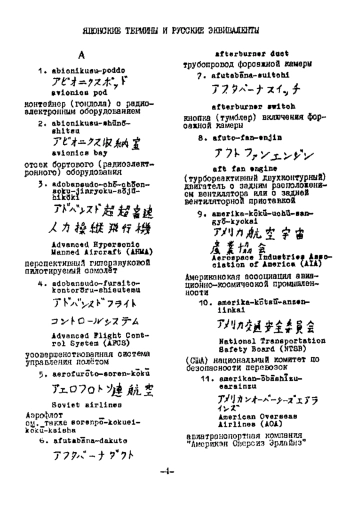 ЯПОНСКИЕ ТЕРМИНЫ И РУССКИЕ ЭКВИВАЛЕНТЫ
A
1. abionikusu-poddo
アビオニクスポッド
avionics pod
контейнер (гондола) с радио-
электронным оборудованием
2. abionikusu-shūnō-
shitsu
アビオニクス収納室
avionics bay
отсек бортового (радиоэлект-
ронного) оборудования
3. adobansudo-chō-chōon-
soku-jinryoku-sōjū-
hikōki
アドバンスド超超音速
人力操縦飛行機
Advanced Hypersonic
Manned Aircraft (AHMA)
перспективный гиперзвуковой
пилотируемый самолёт
4. adobansudo-furaito-
kontorōru-shisutemu
アドバンスドフライト
コントロールシステム
Advanced Flight Cont-
rol System (AFCS)
усовершенствованная система
управления полётом
5. aerofurōto-soren-kōkū
アエロフロートソ連航空
Soviet airlines
Аэрофлот
см. также sorenpō-kokuei-
kōkū-kaisha
6. afutabāna-dakuto
アフタバーナダクト
afterburner duct
трубопровод форсажной камеры
7. afutabāna-suitchi
アフタバーナスイッチ
afterburner switch
кнопка (тумблер) включения фор-
сажной камеры
8. afuto-fan-enjin
アフトファンエンジン
aft fan engine
(турбореактивный двухконтурный)
двигатель с задним расположени-
ем вентилятора или с задней
вентиляторной приставкой
9. amerika-kōkū-uchū-san-
gyō-kyōkai
アメリカ航空宇宙
産業協会
Aerospace Industries Asso-
ciation of America (AIA)
Американская ассоциация авиа-
ционно-космической промышлен-
ности
10. amerika-kōtsū-anzen-
iinkai
アメリカ交通安全委員会
National Transportation
Safety Board (NTSB)
(США) национальный комитет по
безопасности перевозок
11. amerikan-ōbāshīzu-
earainzu
アメリカンオーバーシーズエアラ
インズ
American Overseas
Airlines (AOA)
авиатранспортная компания
"Америкэн Оверсиз Эрлайнз"
-4-